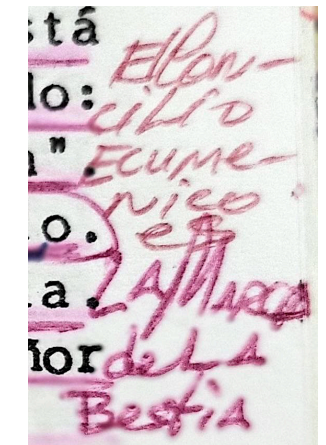 stá
lo:
a".
o.
a.
ñor
El Con-
cilio
Ecume-
nico
es
LA MARCA
de LA
Bestia